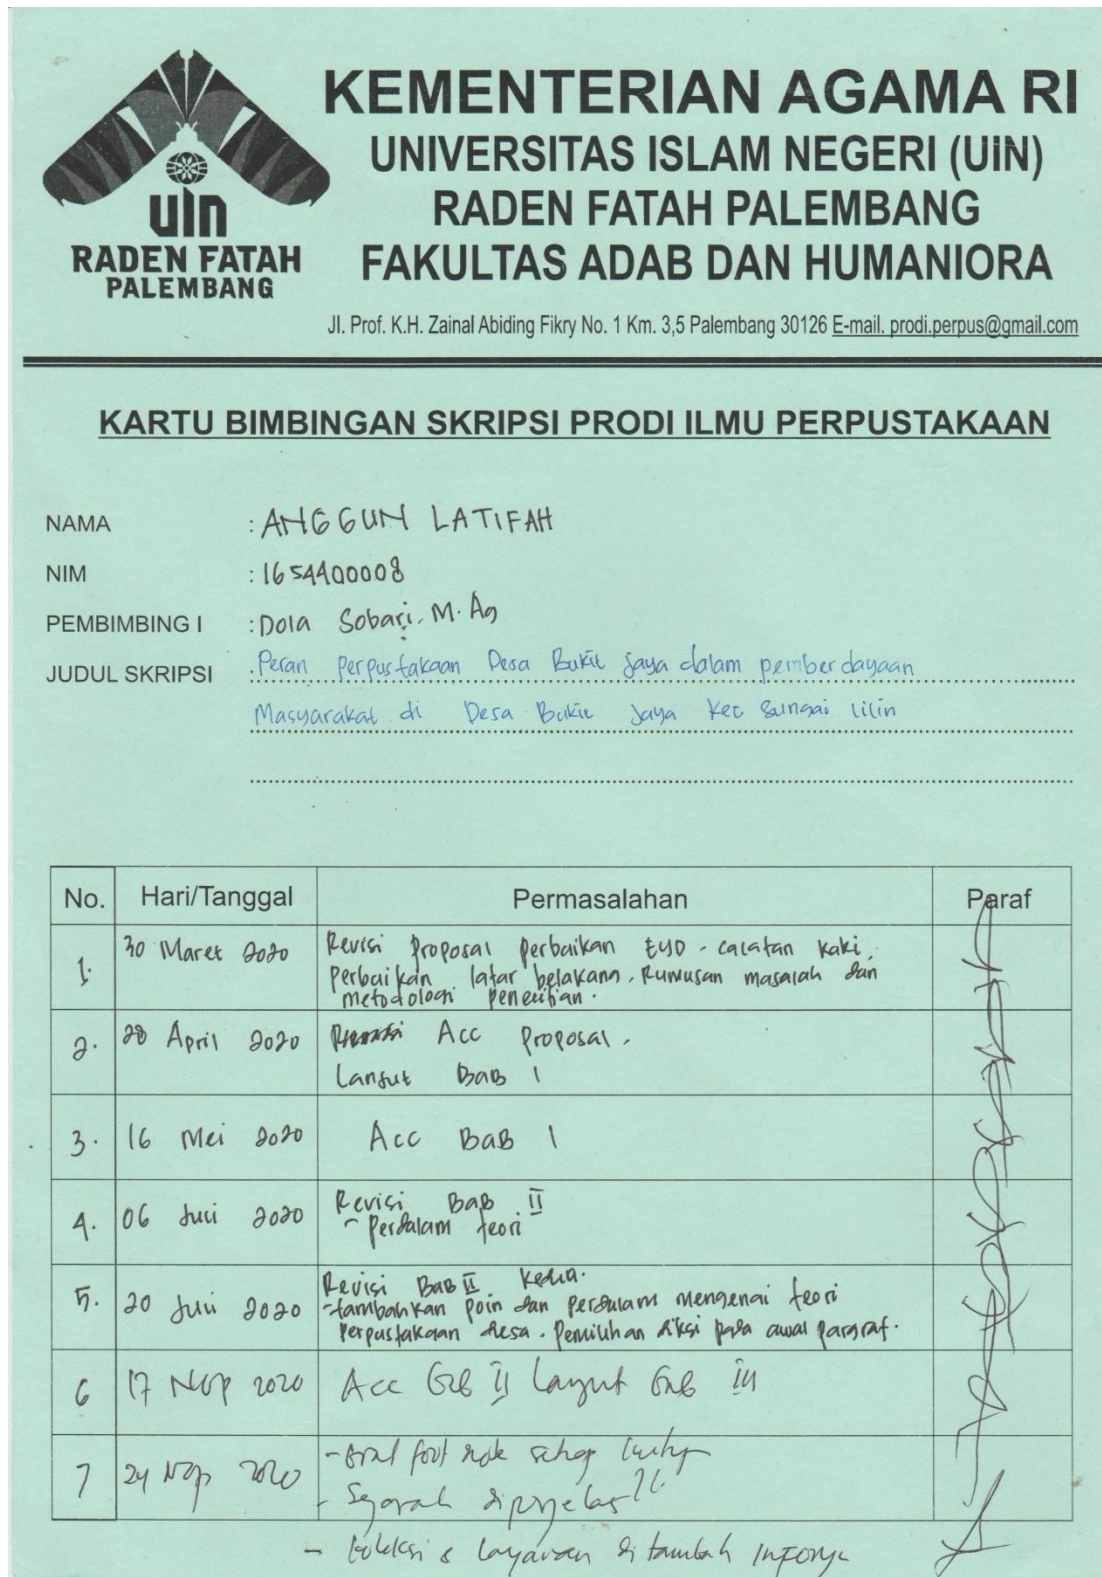 KEMENTERIAN AGAMA RI
UNIVERSITAS ISLAM NEGERI (UIN)
RADEN FATAH PALEMBANG
FAKULTAS ADAB DAN HUMANIORA
uin
RADEN FATAH
PALEMBANG
Jl. Prof. K.H. Zainal Abiding Fikry No. 1 Km. 3,5 Palembang 30126 E-mail. prodi.perpus@gmail.com
KARTU BIMBINGAN SKRIPSI PRODI ILMU PERPUSTAKAAN
NAMA : ANGGUN LATIFAH
NIM : 1654400008
PEMBIMBING I : Dola Sobari, M.Ag
JUDUL SKRIPSI : Peran Perpustakaan Desa Bukit Jaya dalam pemberdayaan
Masyarakat di Desa Bukit Jaya Kec Sungai lilin
No. Hari/Tanggal Permasalahan Paraf
1. 30 Maret 2020 Revisi Proposal perbaikan EYD - catatan kaki,
Perbaikan latar belakang, Rumusan masalah dan
metodologi penelitian.
2. 28 April 2020 Acc Proposal,
Lanjut BAB I
3. 16 Mei 2020 Acc BAB I
4. 06 Juli 2020 Revisi BAB II
- Perdalam teori
5. 20 Juli 2020 Revisi BAB II Kedua.
- tambahkan poin dan Perdalam mengenai teori
Perpustakaan desa. Pemilihan diksi pada awal paragraf.
6 17 Nop 2020 Acc Bab II Lanjut Bab III
7 24 Nop 2020 - foot note setiap
- Sejarah diperjelas
- Koleksi & layanan ditambah infonya